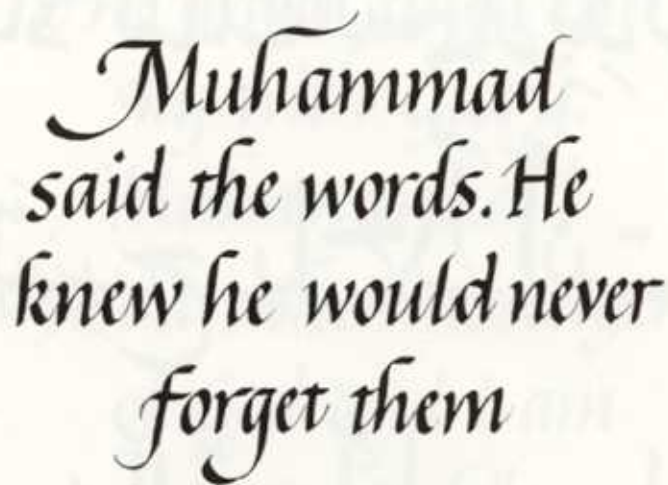 Muhammad
said the words. He
knew he would never
forget them